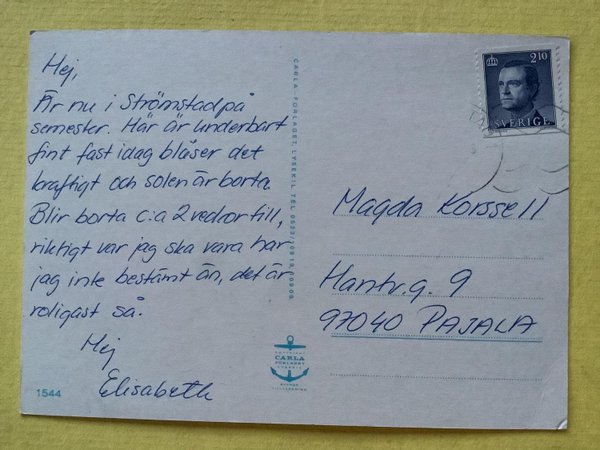 Hej,
Är nu i Strömstad på
semester. Här är underbart
fint fast idag blåser det
kraftigt och solen är borta.
Blir borta c:a 2 veckor till,
riktigt var jag ska vara har
jag inte bestämt än, det är
roligast så.
Hej
Elisabeth
1544
CARLA-FÖRLAGET, LYSEKIL, TEL
CARLA
FÖRLAGET
LYSEKIL
2.10
SVERIGE
Magda Korssell
Hantv.g. 9
97040 PAJALA